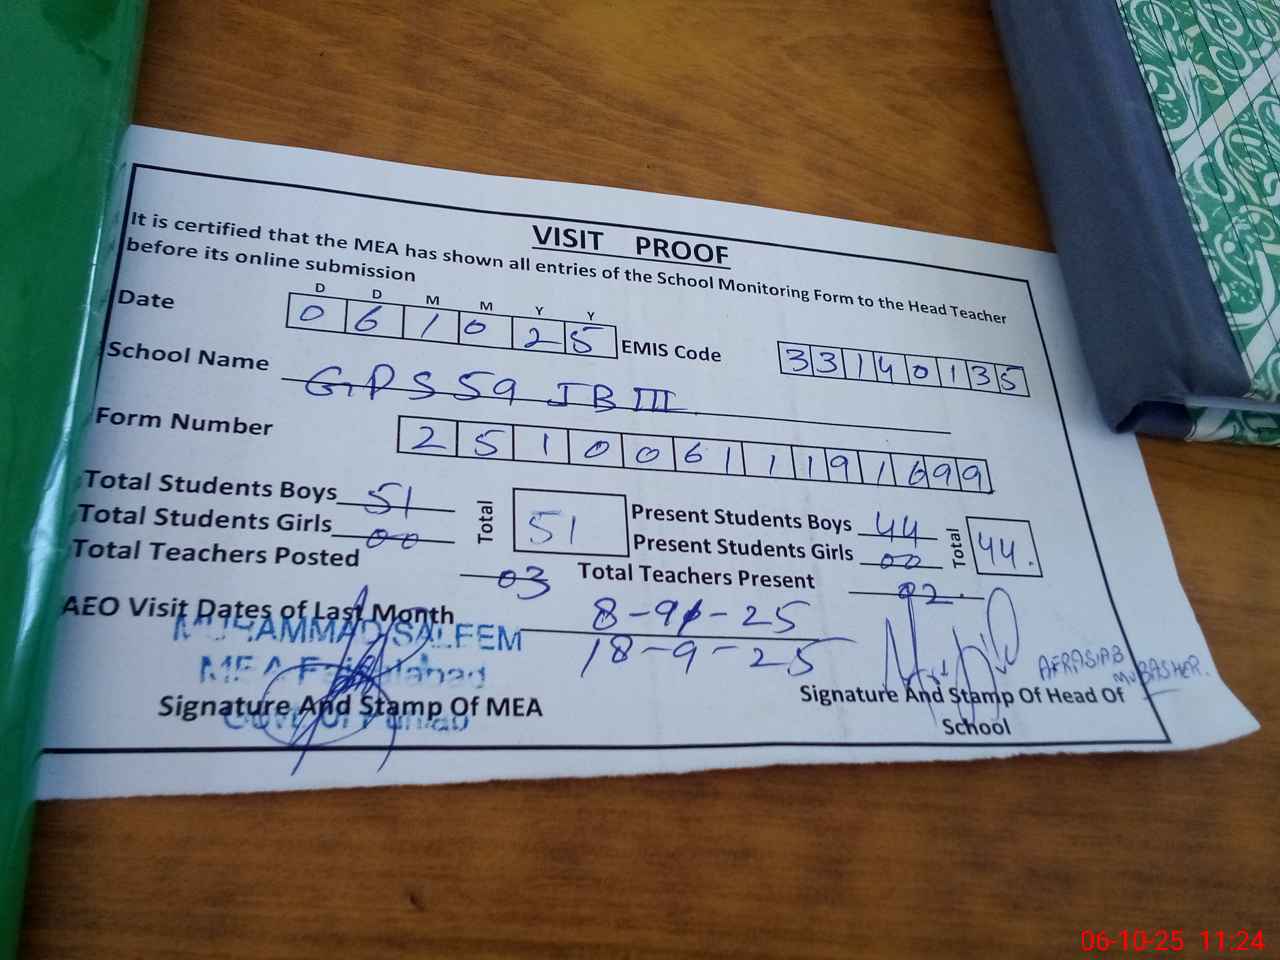 VISIT PROOF
It is certified that the MEA has shown all entries of the School Monitoring Form to the Head Teacher
before its online submission
D D M M Y Y
Date 0 6 1 0 2 5 EMIS Code 3 3 1 4 0 1 3 5
School Name GPS 59 JB III
Form Number 2 5 1 0 0 6 1 1 1 9 1 6 9 9
Total Students Boys 51 Total 51 Present Students Boys 44 Total 44.
Total Students Girls 00 Present Students Girls 00
Total Teachers Posted 03 Total Teachers Present 02.
AEO Visit Dates of Last Month 8-9-25
18-9-25
MUHAMMAD SALEEM
MEA Faisalabad
Govt. of Punjab
Signature And Stamp Of MEA
AFRASIAB
MUBASHER.
Signature And Stamp Of Head Of
School
06-10-25 11:24